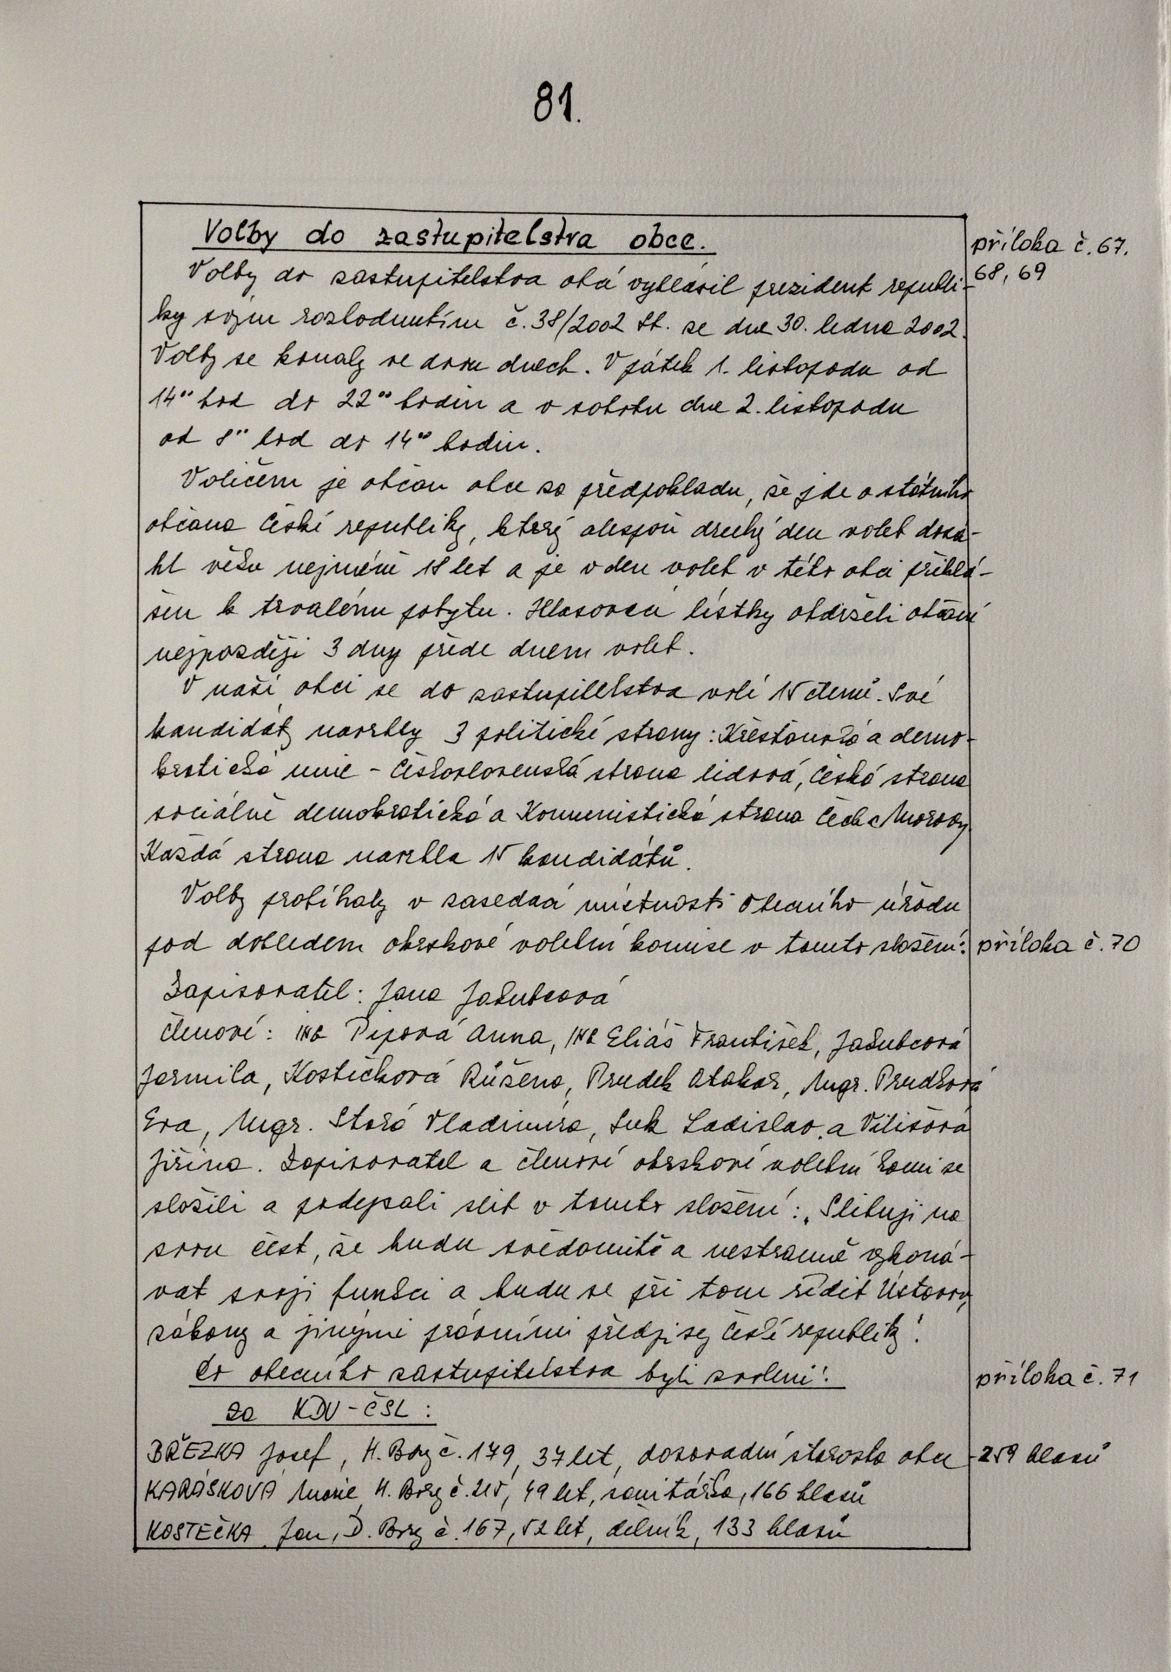 81.
Volby do zastupitelstva obce.
příloha č. 67,
68, 69
Volby do zastupitelstva obcí vyhlásil prezident republi-
ky svým rozhodnutím č. 38/2002 Sb. ze dne 30. ledna 2002.
Volby se konaly ve dvou dnech. V pátek 1. listopadu od
14⁰⁰ hod do 22⁰⁰ hodin a v sobotu dne 2. listopadu
od 8⁰⁰ hod do 14⁰⁰ hodin.
Voličem je občan obce za předpokladu, že jde o státního
občana České republiky, který alespoň druhý den voleb dosá-
hl věku nejméně 18 let a je v den voleb v této obci přihlá-
šen k trvalému pobytu. Hlasovací lístky obdrželi občané
nejpozději 3 dny přede dnem voleb.
V naší obci se do zastupitelstva volí 15 členů. Své
kandidáty navrhly 3 politické strany: Křesťanská a demo-
kratická unie - Československá strana lidová, Česká strana
sociálně demokratická a Komunistická strana Čech a Moravy.
Každá strana navrhla 15 kandidátů.
Volby probíhaly v zasedací místnosti Obecního úřadu
pod dohledem okrskové volební komise v tomto složení:
příloha č. 70
Zapisovatel: Jana Jakubcová
členové: ing Pipová Anna, ing Eliáš František, Jakubcová
Jarmila, Kostečková Růžena, Prudek Otakar, Mgr. Prudková
Eva, Mgr. Stará Vladimíra, Suk Ladislav, a Vilišová
Jiřina. Zapisovatel a členové okrskové volební komise
složili a podepsali slib v tomto složení: „Slibuji na
svou čest, že budu svědomitě a nestranně vykoná-
vat svoji funkci a budu se při tom řídit Ústavou,
zákony a jinými právními předpisy České republiky".
Do obecního zastupitelstva byli zvoleni:
příloha č. 71
za KDU-ČSL:
BŘEZKA Josef, H. Bory č. 179, 37 let, dosavadní starosta obce
- 259 hlasů
KARÁSKOVÁ Marie, H. Bory č. 215, 49 let, sanitářka, 166 hlasů
KOSTEČKA Jan, D. Bory č. 167, 52 let, dělník, 133 hlasů